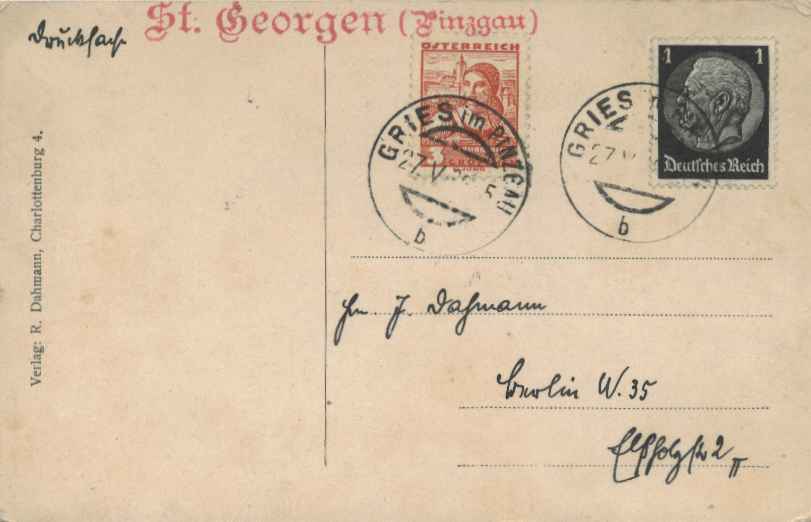 Drucksache
St. Georgen (Pinzgau)
ÖSTERREICH
3
GROSCHEN
1 1
Deutsches Reich
GRIES im PINZGAU
27. V.
5
b
GRIES
27. V.
b
Verlag: R. Dahmann, Charlottenburg 4.
Hn J. Dahmann
Berlin W. 35
Elßholzstr 2 II